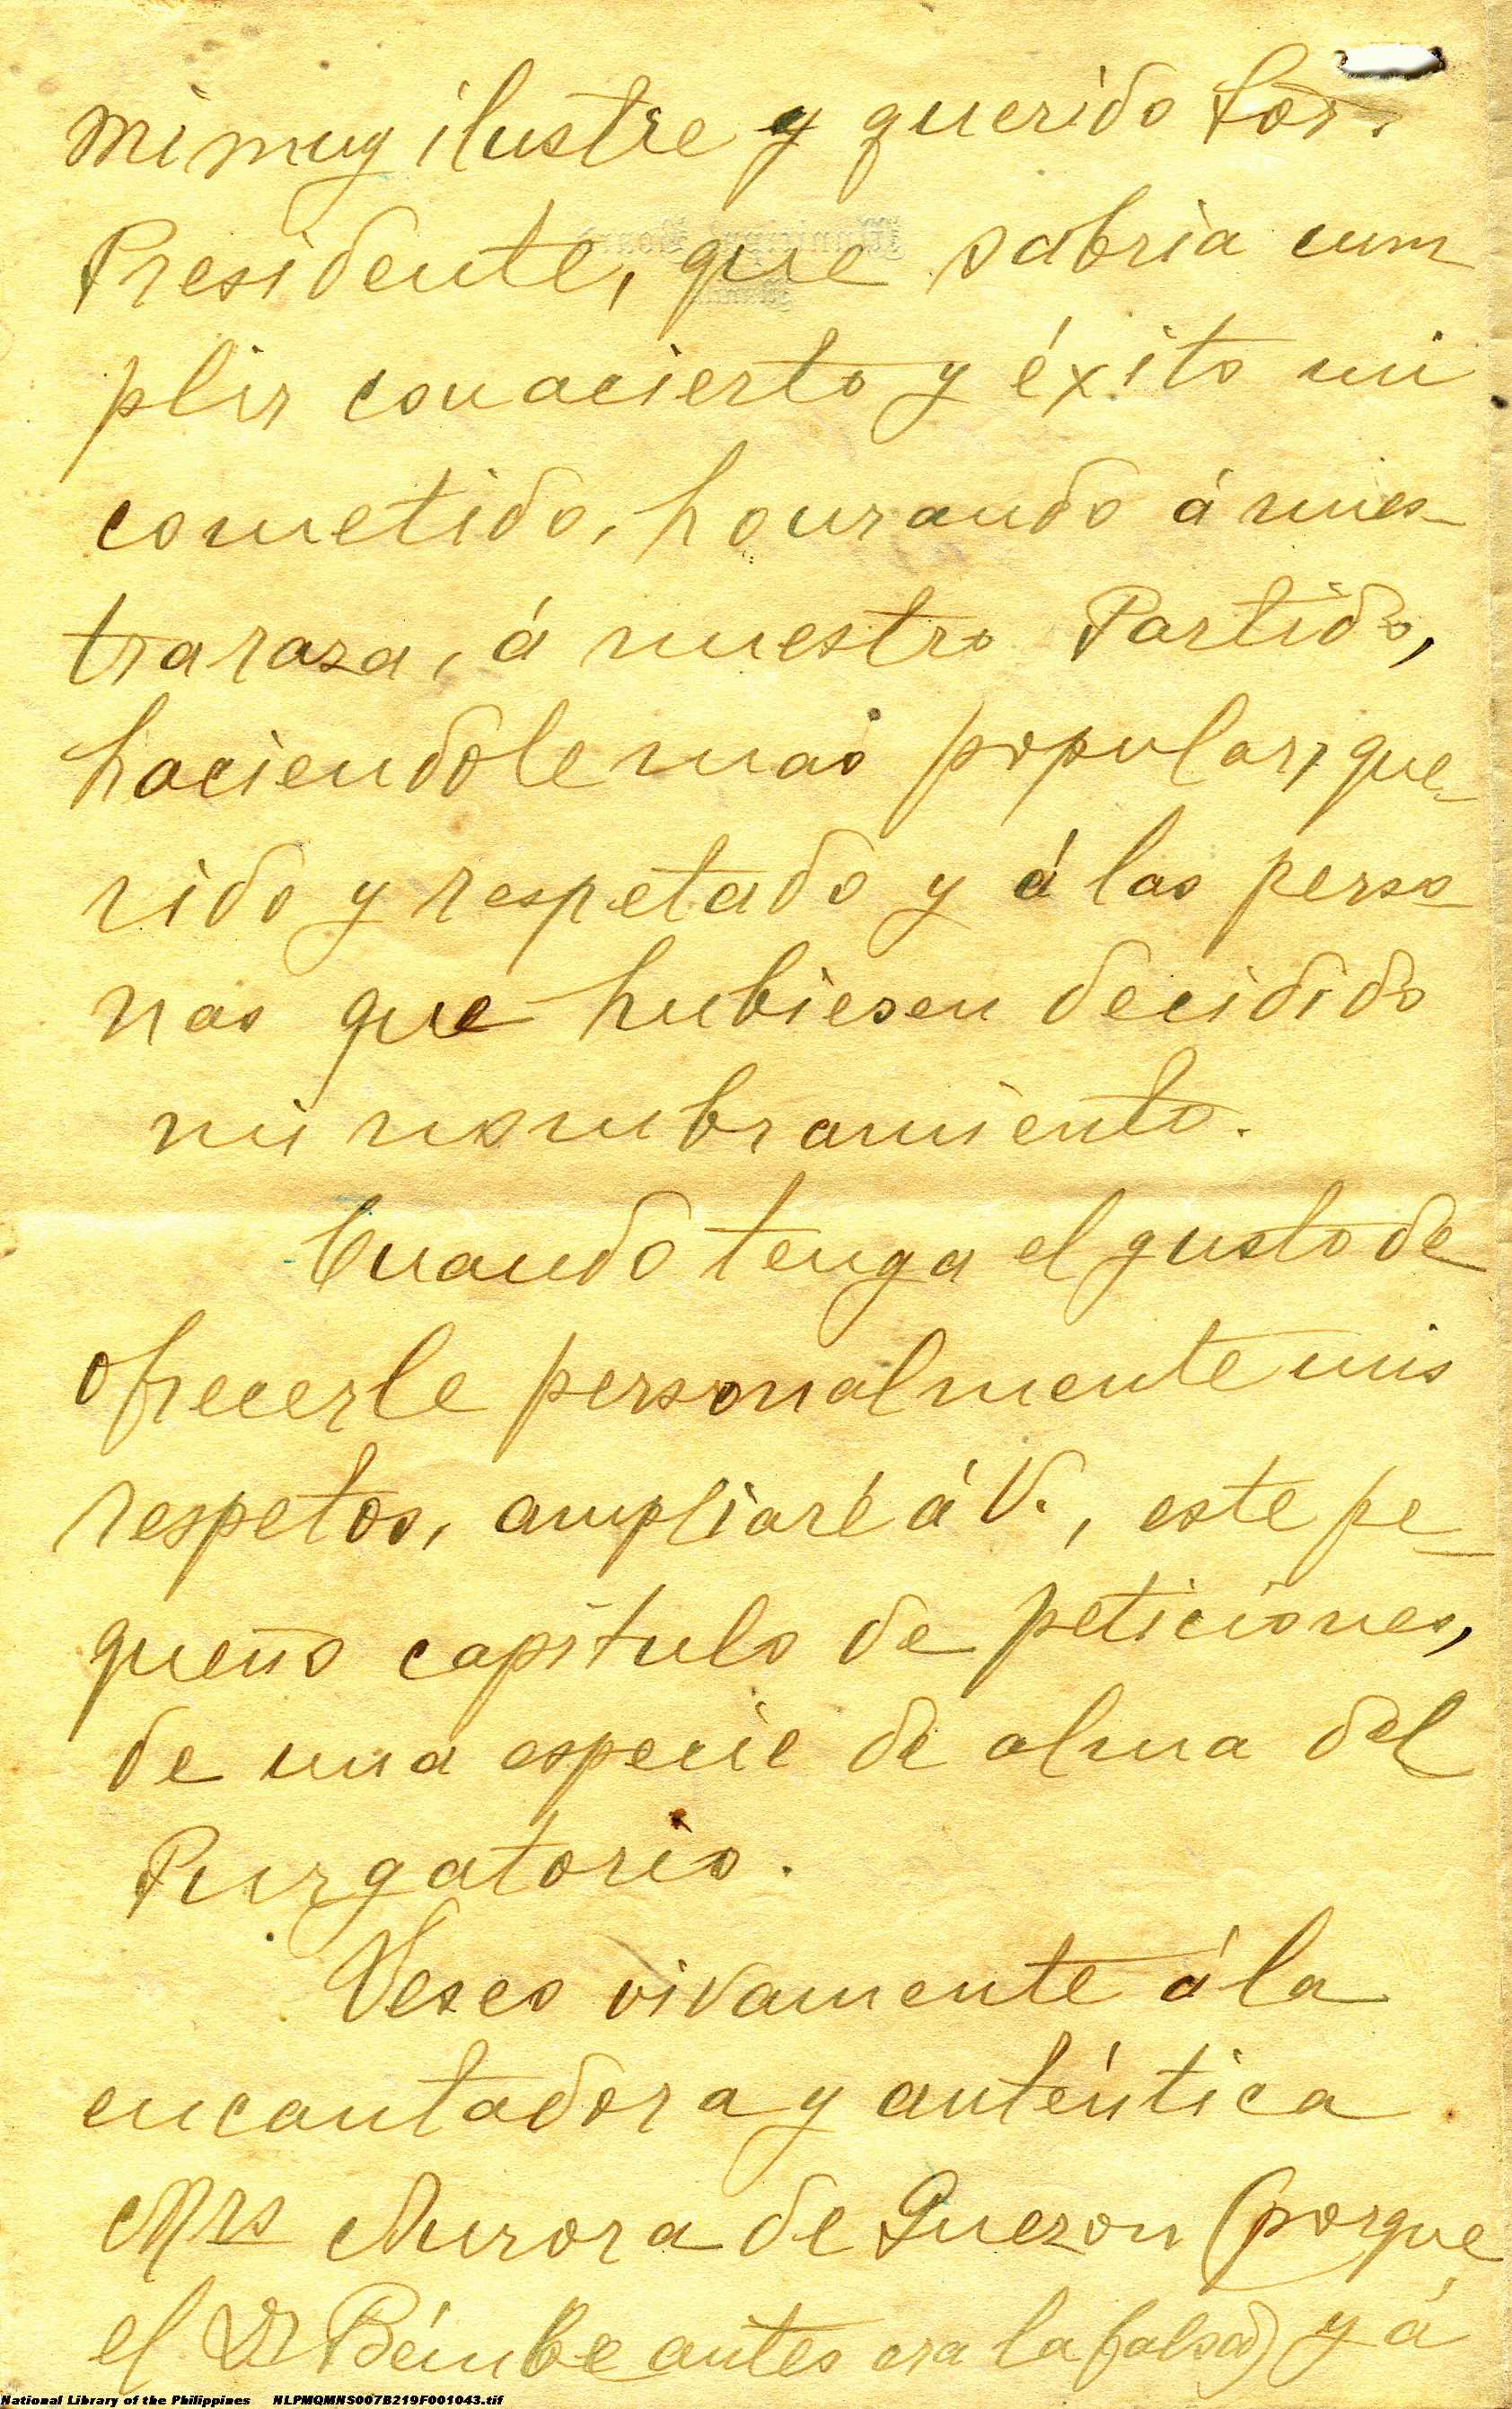 mi muy ilustre y querido Sor.
Presidente, que sabria cum
plir con acierto y éxito mi
cometido, honrando á nues-
tra raza, á nuestro Partido,
haciendole mas popular, que-
rido y respetado y á las perso-
nas que hubiesen decidido
mi nombramiento.
Cuando tenga el gusto de
ofrecerle personalmente mis
respetos, ampliaré á V., este pe-
queño capítulo de peticiones,
de una especie de alma del
Purgatorio.
Deseo vivamente á la
encantadora y auténtica
Mrs Aurora de Quezon (porque
el Dr antes era la falsa) y á
National Library of the Philippines NLPMQMNS007B219F001043.tif